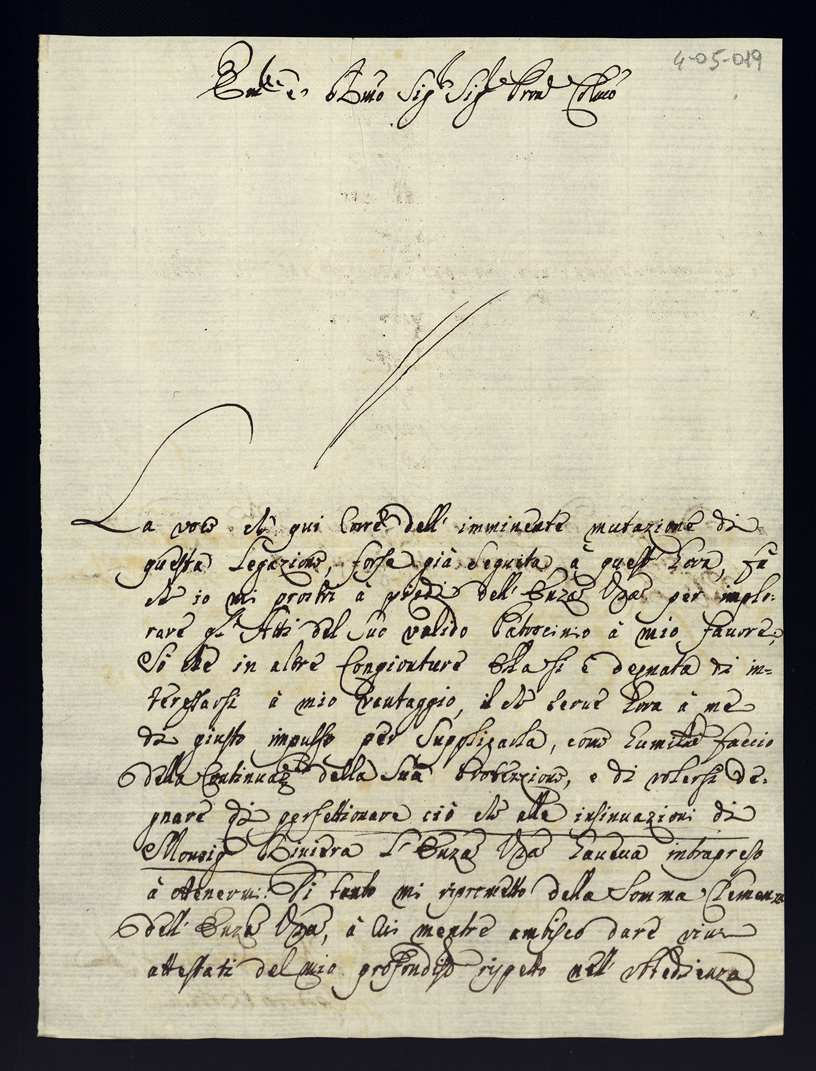 4-05-019
Em.e R.mo Sig.r Sig.e Pron.e Col.mo
La voce che qui corre dell' imminente mutazione di
questa Legazione, forse già seguita à quest' hora, fà
che io mi prostri à piedi dell' Em.za V.ra per implo-
rare gl' Atti del Suo valido Patrocinio à mio favore,
Sò che in altre Congionture Ella si è degnata di in-
teressarsi à mio Vantaggio, il che serve hora à me
di giusto impulso per Supplicarla, come humilm.te faccio
della Continuaz.ne della Sua Protenzione, e di volersi de-
gnare di perfettionare ciò che alle insinuazioni di
Monsig.r Riviera l' Em.za V.ra haveva intrapreso
à ottenermi. Di tanto mi riprometto della Somma Clemenza
dell' Em.za V.ra, à Cui mentre ambisco dare vive
attestati del mio profondiss.o rispetto nell' Vbedienza